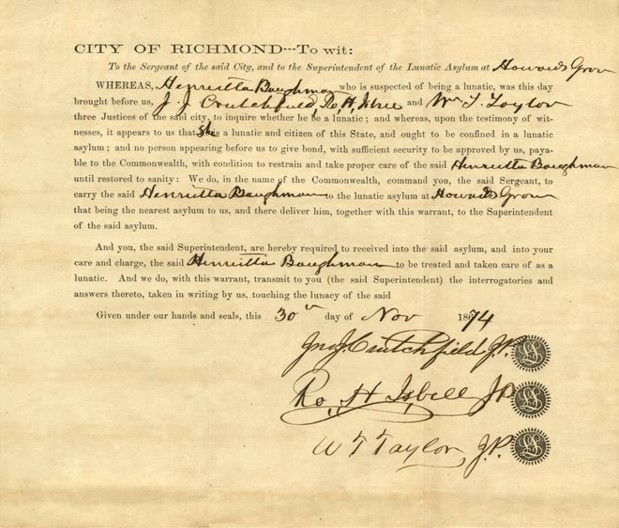 CITY OF RICHMOND---To wit:
To the Sergeant of the said City, and to the Superintendent of the Lunatic Asylum at Howards Grove
WHEREAS, Henrietta Baughman who is suspected of being a lunatic, was this day
brought before us, J. J. Crutchfield, Ro. H. and Wm T. Taylor
three Justices of the said city, to inquire whether he be a lunatic; and whereas, upon the testimony of wit-
nesses, it appears to us that She is a lunatic and citizen of this State, and ought to be confined in a lunatic
asylum; and no person appearing before us to give bond, with sufficient security to be approved by us, paya-
ble to the Commonwealth, with condition to restrain and take proper care of the said Henrietta Baughman
until restored to sanity: We do, in the name of the Commonwealth, command you, the said Sergeant, to
carry the said Henrietta Baughman to the lunatic asylum at Howards Grove
that being the nearest asylum to us, and there deliver him, together with this warrant, to the Superintendent
of the said asylum.
And you, the said Superintendent, are hereby required to received into the said asylum, and into your
care and charge, the said Henrietta Baughman to be treated and taken care of as a
lunatic. And we do, with this warrant, transmit to you (the said Superintendent) the interrogatories and
answers thereto, taken in writing by us, touching the lunacy of the said
Given under our hands and seals, this 30th day of Nov 1874
Jno J. Crutchfield J.P. LS
Ro. H Isbell JP LS
W T Taylor, J.P. LS